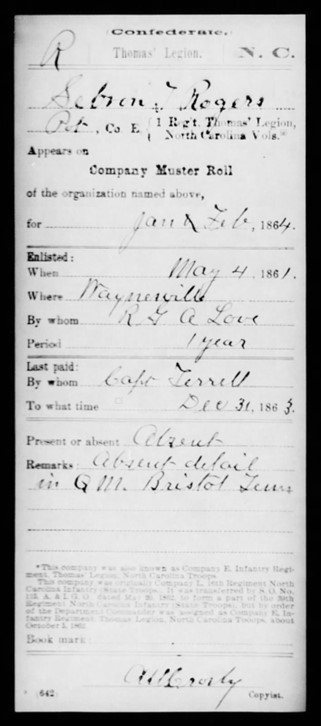 Confederate.
R Thomas' Legion. N. C.
Sebron T Rogers
Pvt, Co. E. { 1 Reg't, Thomas' Legion, North Carolina Vols.*
Appears on
Company Muster Roll
of the organization named above,
for Jan & Feb, 1864.
Enlisted:
When May 4, 1861.
Where Waynesville
By whom R G A Love
Period 1 year
Last paid:
By whom Capt Terrell
To what time Dec 31, 1863.
Present or absent Absent
Remarks: Absent detail
in Q M. Bristol Tenn
*This company was also known as Company E, Infantry Regiment, Thomas' Legion, North Carolina Troops.
This company was originally Company L, 16th Regiment North
Carolina Infantry (State Troops). It was transferred by S. O. No.
A. & I. G. O. dated May 1862, to form a part of the
Regiment North Carolina Infantry (State Troops), but by order
of the Department Commander was assigned as Company E, Infantry Regiment, Thomas' Legion, North Carolina Troops, about
October 1, 1862.
Book mark:
(642) Copyist.